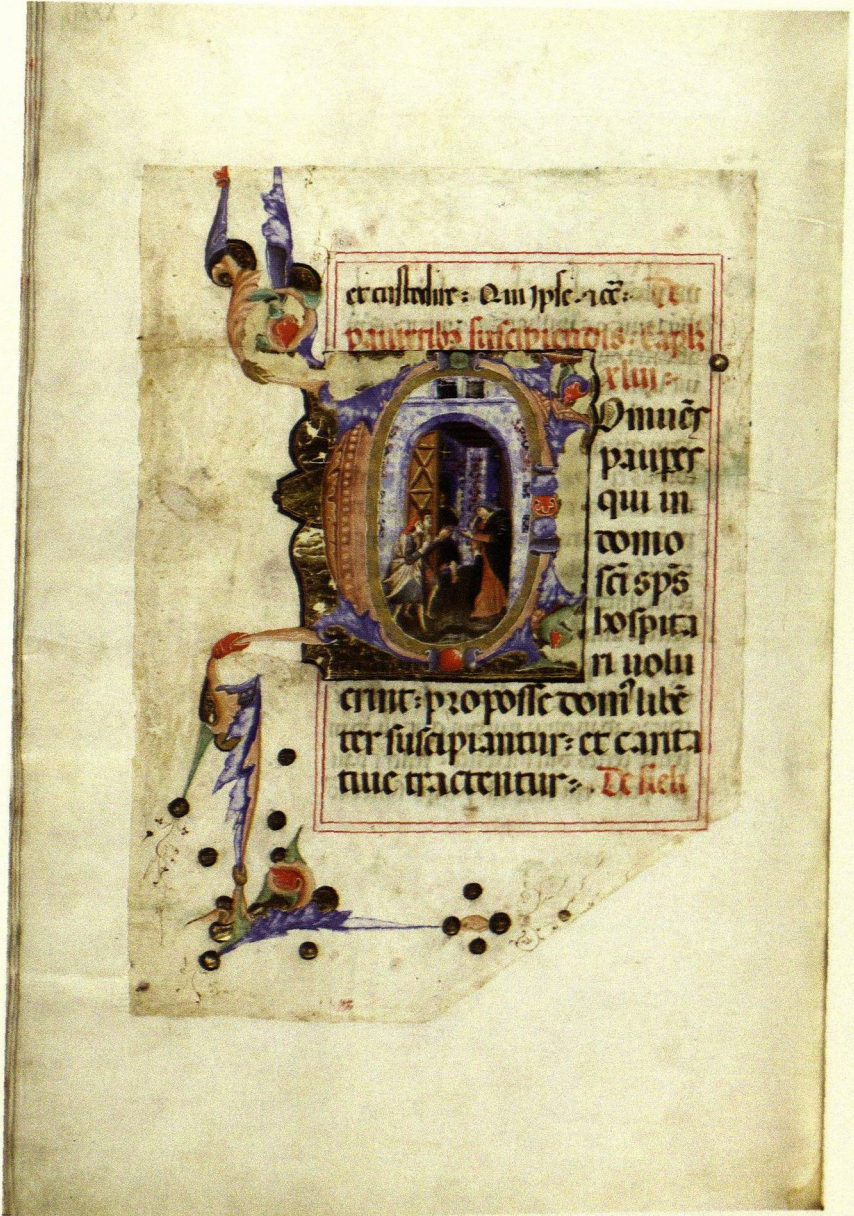 et custodire: Qui ipse ⁊cē: De
paupribꝫ suscipiendis. capl̄
xliij
Omnēs
paupes
qui in
domo
sc̄i sp̄s
hospita
ri uolu
erint: pro posse domꝰ libē
ter suscipiantur: et carita
tiue tractentur: De